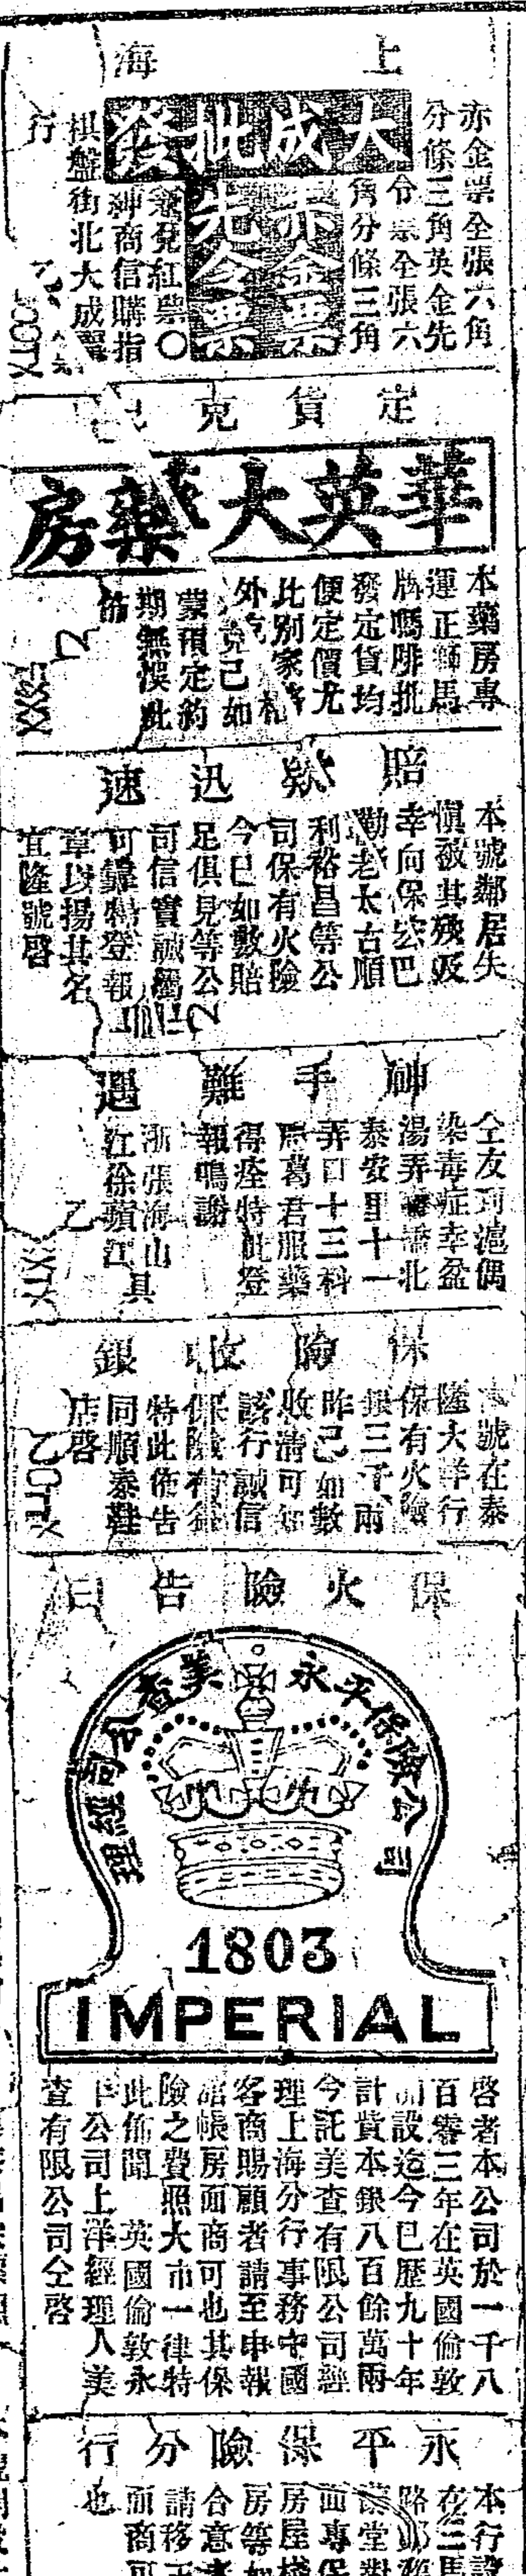 上海
大成批發
赤金票
先令票
赤金票全張六角
分條三角英金先
令票全張六
角分條三角
兼兌紅票〇
紳商信購指
棋盤街北大成
行
定貨克己
華英大藥房
本藥房專
運正獅馬
牌嗎啡批
發定貨均
便定價尤
比別家格
外克己如
蒙預定約
期無悞此
佈
賠款迅速
本號鄰居失
愼被其殃及
幸向保宏巴
勒老太古順
利裕昌等公
司保有火險
今已如數賠
足俱見等公
司信實誠屬
可靠特登報
章以揚其名
宜隆號啓
砷手難遇
仝友到滬偶
染毒症幸盆
湯弄橋北
泰安里十一
弄口十三科
葛君服藥
得痊特此登
報鳴謝
浙張海山
江徐蘋江 具
保險收銀
號在泰
隆大洋行
保有火險
銀三千兩
昨已如數
收清可知
該行誠信
保險有益
特此佈告
同順泰鞋
店啓
保火險告白
永平保險公司
美查公司經理
1803
IMPERIAL
啓者本公司於一千八
百零三年在英國倫敦
開設迄今已歷九十年
計費本銀八百餘萬兩
今託美查有限公司經
理上海分行事務中國
客商賜顧者請至申報
館帳房面商可也其保
險之費照大市一律特
此佈聞 英國倫敦永
平公司上洋經理人美
查有限公司仝啓
永平保險分行
本行設
在三馬
路
堂對
面專保
房屋棧
房等如
合意者
請移玉
面商可
也